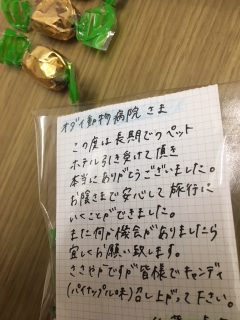 オダイ動物病院さま
この度は長期でのペット
ホテル引き受けて頂き
本当にありがとうございました。
お陰さまで安心して旅行に
いくことができました。
また何か機会がありましたら
宜しくお願い致します。
ささやかですが皆様でキャンディ
(パイナップル味)召し上がって下さい。